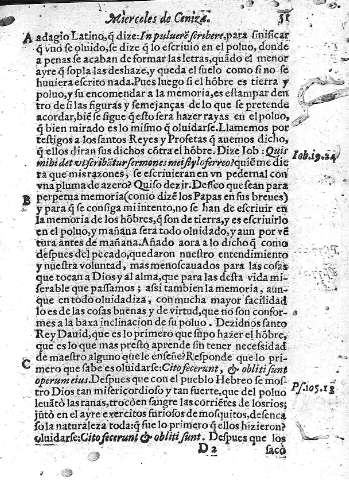 Miercoles de Ceniza. 51
A adagio Latino, q̃ dize: In puluere scribere, para sinificar
q̃ vno se oluido, se dize q̃ lo escriuio en el poluo, donde
a penas se acaban de formar las letras, quãdo el menor
ayre q̃ sopla las deshaze, y queda el suelo como si no se
huuiera escrito nada. Pues luego si el hõbre es tierra y
poluo, y su encomendar a la memoria, es estampar den
tro de si las figuras y semejanças de lo que se pretende
acordar, biẽ se sigue q̃ esto sera hazer rayas en el poluo,
q̃ bien mirado es lo mismo q̃ oluidarse. Llamemos por
testigos a los santos Reyes y Profetas q̃ auemos dicho,
q̃ ellos diran sus dichos cõtra el hõbre. Dize Iob: Quis
mihi det vt scribãtur sermones mei stylo ferreo? quiẽ me die
ra que mis razones, se escriuieran en vn pedernal con
vna pluma de azero? Quiso dezir. Desseo que sean para
B perpetua memoria (como dizẽ los Papas en sus breues)
y para q̃ se consiga mi intento, no se han de escriuir en
la memoria de los hõbres, q̃ son de tierra, y es escriuirlo
en el poluo, y mañana sera todo oluidado, y aun por vẽ
tura antes de mañana. Añado aora a lo dicho q̃ como
despues del pecado, quedaron nuestro entendimiento
y nuestra voluntad, mas menoscauados para las cosas
que tocan a Dios y al alma, que para las desta vida mi-
serable que passamos; assi tambien la memoria, aun-
que en todo oluidadiza, con mucha mayor facilidad
lo es de las cosas buenas y de virtud, que no son confor-
mes a la baxa inclinacion de su poluo. Dezidnos santo
Rey Dauid, que es lo primero que supo hazer el hõbre,
que es lo que mas presto aprende sin tener necessidad
de maestro alguno que le enseñe? Responde que lo pri-
C mero que sabe es oluidarse: Cito fecerunt, & obliti sunt
operum eius. Despues que con el pueblo Hebreo se mos-
tro Dios tan misericordioso y tan fuerte, que del poluo
leuãtò las ranas, trocò en sangre las corriẽtes de los rios;
jũtò en el ayre exercitos furiosos de mosquitos, desenca
so la naturaleza toda: q̃ fue lo primero q̃ ellos hizieron?
oluidarse: Cito fecerunt & obliti sunt. Despues que los
D 2 sacò
Iob. 19. 24
Ps. 105. 13